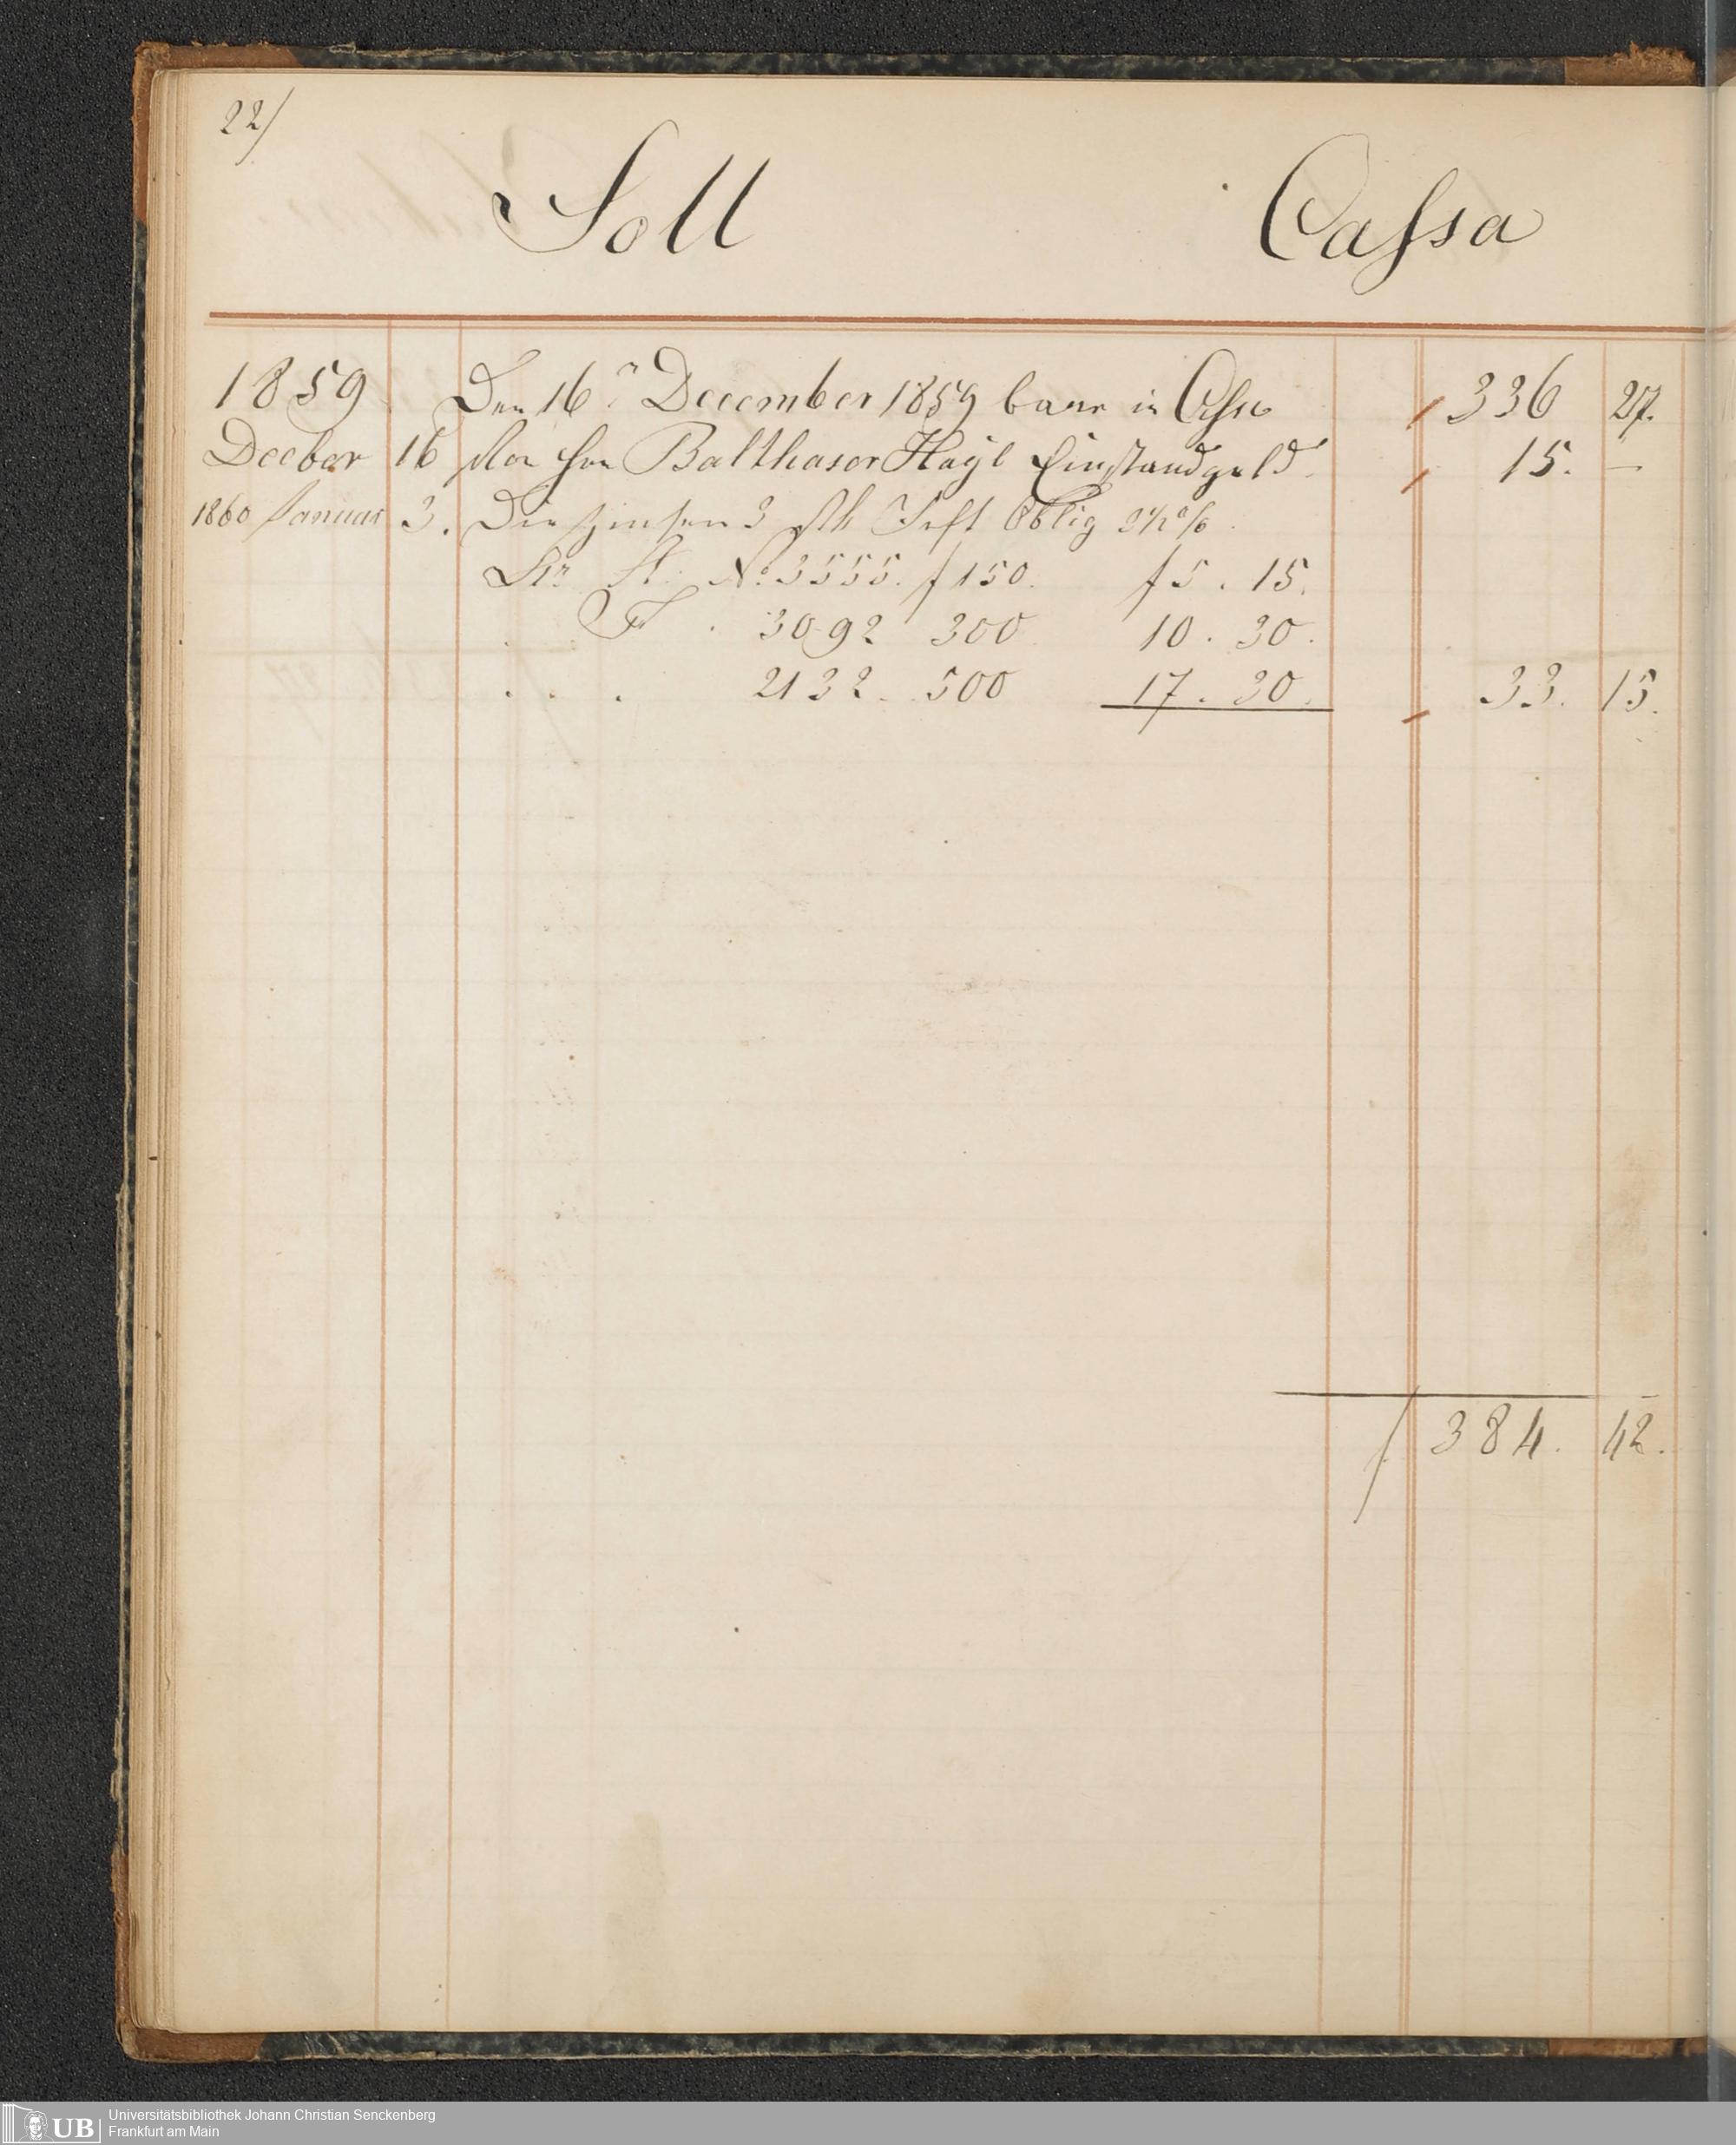 22/
Soll Cassa
1859 Den 16n December 1859 baar in Cassa 336 27.
Decber 16 Von Hrn Balthasar Hayl Einstandgeld 15. —
1860 Januar 3. Die Zinsen 3 Oblig 3 1/2 %
Lit. A. No. 3555. f 150. f 5. 15.
F. 3092 300 10. 30.
. . . 2132. 500 17. 30. 33. 15.
f 384. 42.
UB Universitätsbibliothek Johann Christian Senckenberg
Frankfurt am Main